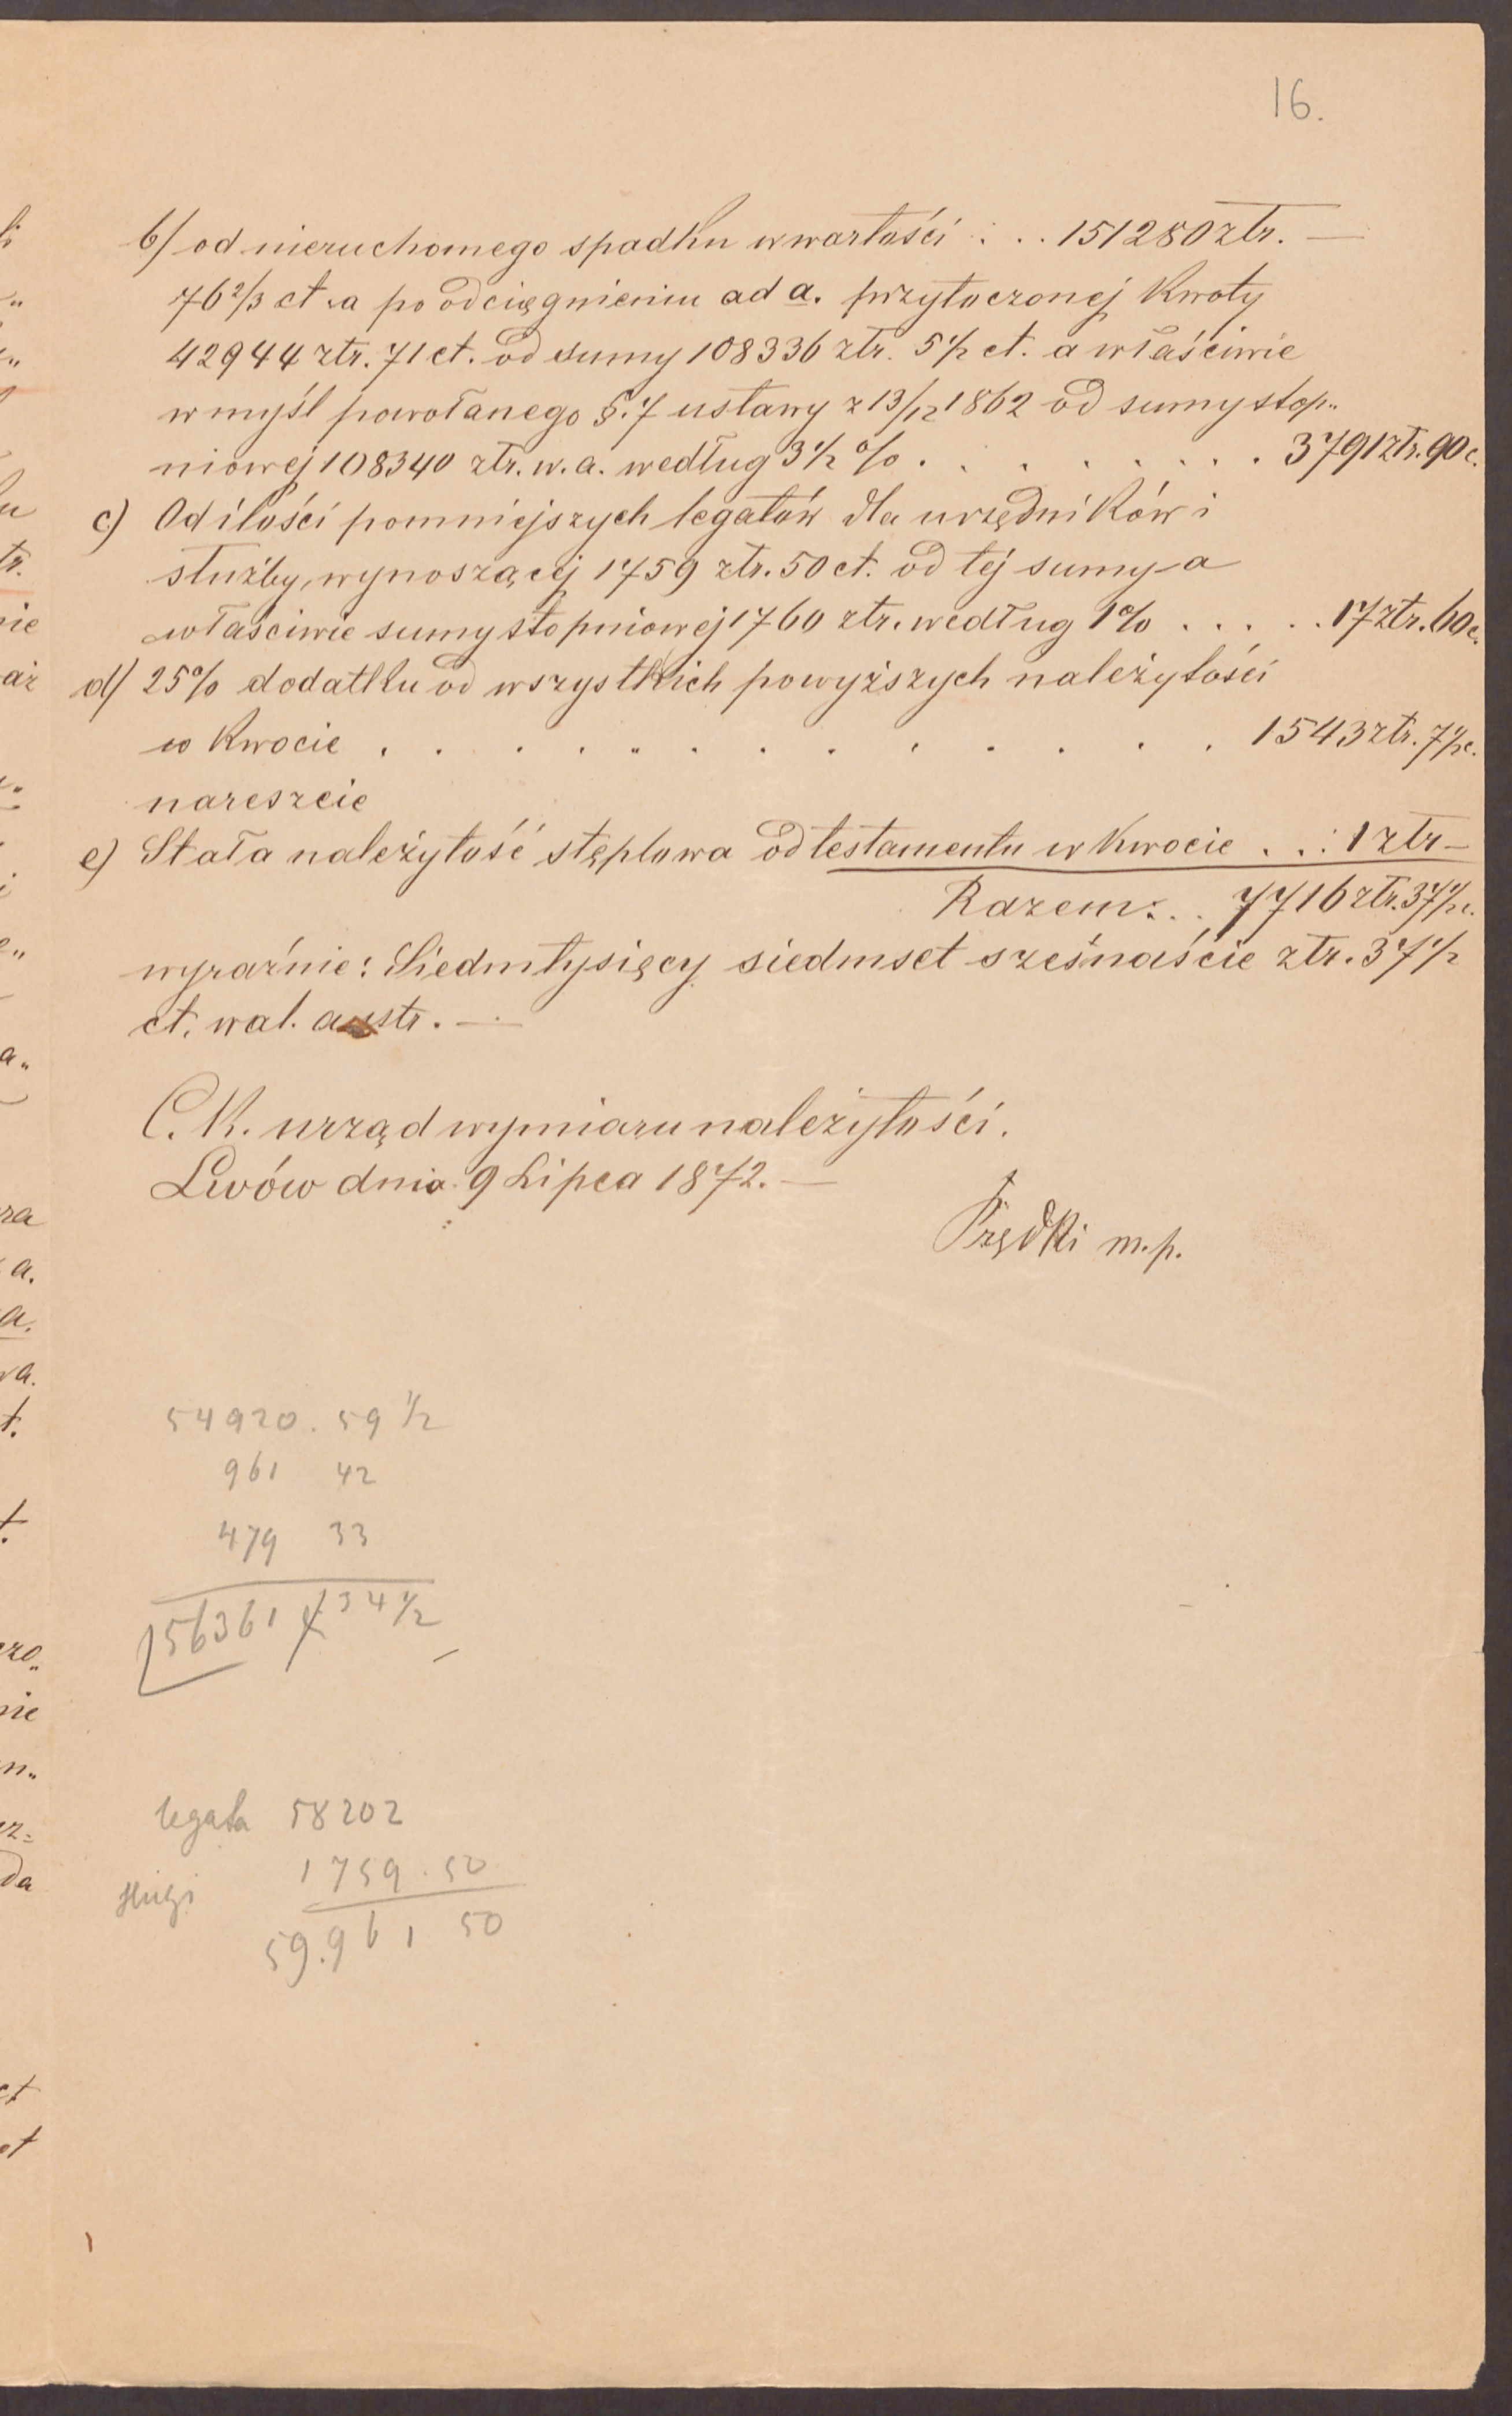 16.
b/ od nieruchomego spadku w wartości . . . 151280 złr. —
76 2/3 ct. a po odciągnieniu ad a. przytoczonej kwoty
42944 złr. 71 ct. od sumy 108336 złr. 5 1/2 ct. a właściwie
w myśl powołanego §. 7 ustawy z 13/12 1862 od sumy stop„
niowej 108340 złr. w. a. według 3 1/2 % . . . . . . . . 3791 złr. 90 c.
c) Od ilości pomniejszych legatów dla urzędników i
służby, wynoszącej 1759 złr. 50 ct. od tej sumy a
właściwie sumy stopniowej 1760 złr. według 1% . . . . . 17 złr. 60 c.
d/ 25% dodatku od wszystkich powyższych należytości
w kwocie . . . . . . . . . . . . . 1543 złr. 7 1/2 c.
nareszcie
e) Stała należytość stęplowa od testamentu w kwocie . . : 1 złr —
Razem: . . 7716 złr. 37 1/2 c.
wyraźnie: Siedmtysięcy siedmset sześnaście złr. 37 1/2
ct. wal. austr. —
C. K. urząd wymiaru należytości.
Lwów dnia 9 Lipca 1872. —
Prędki m. p.
54920. 59 1/2
961 42
479 33
56361 34 1/2
legata 58202
służi 1759. 50
59.961 50